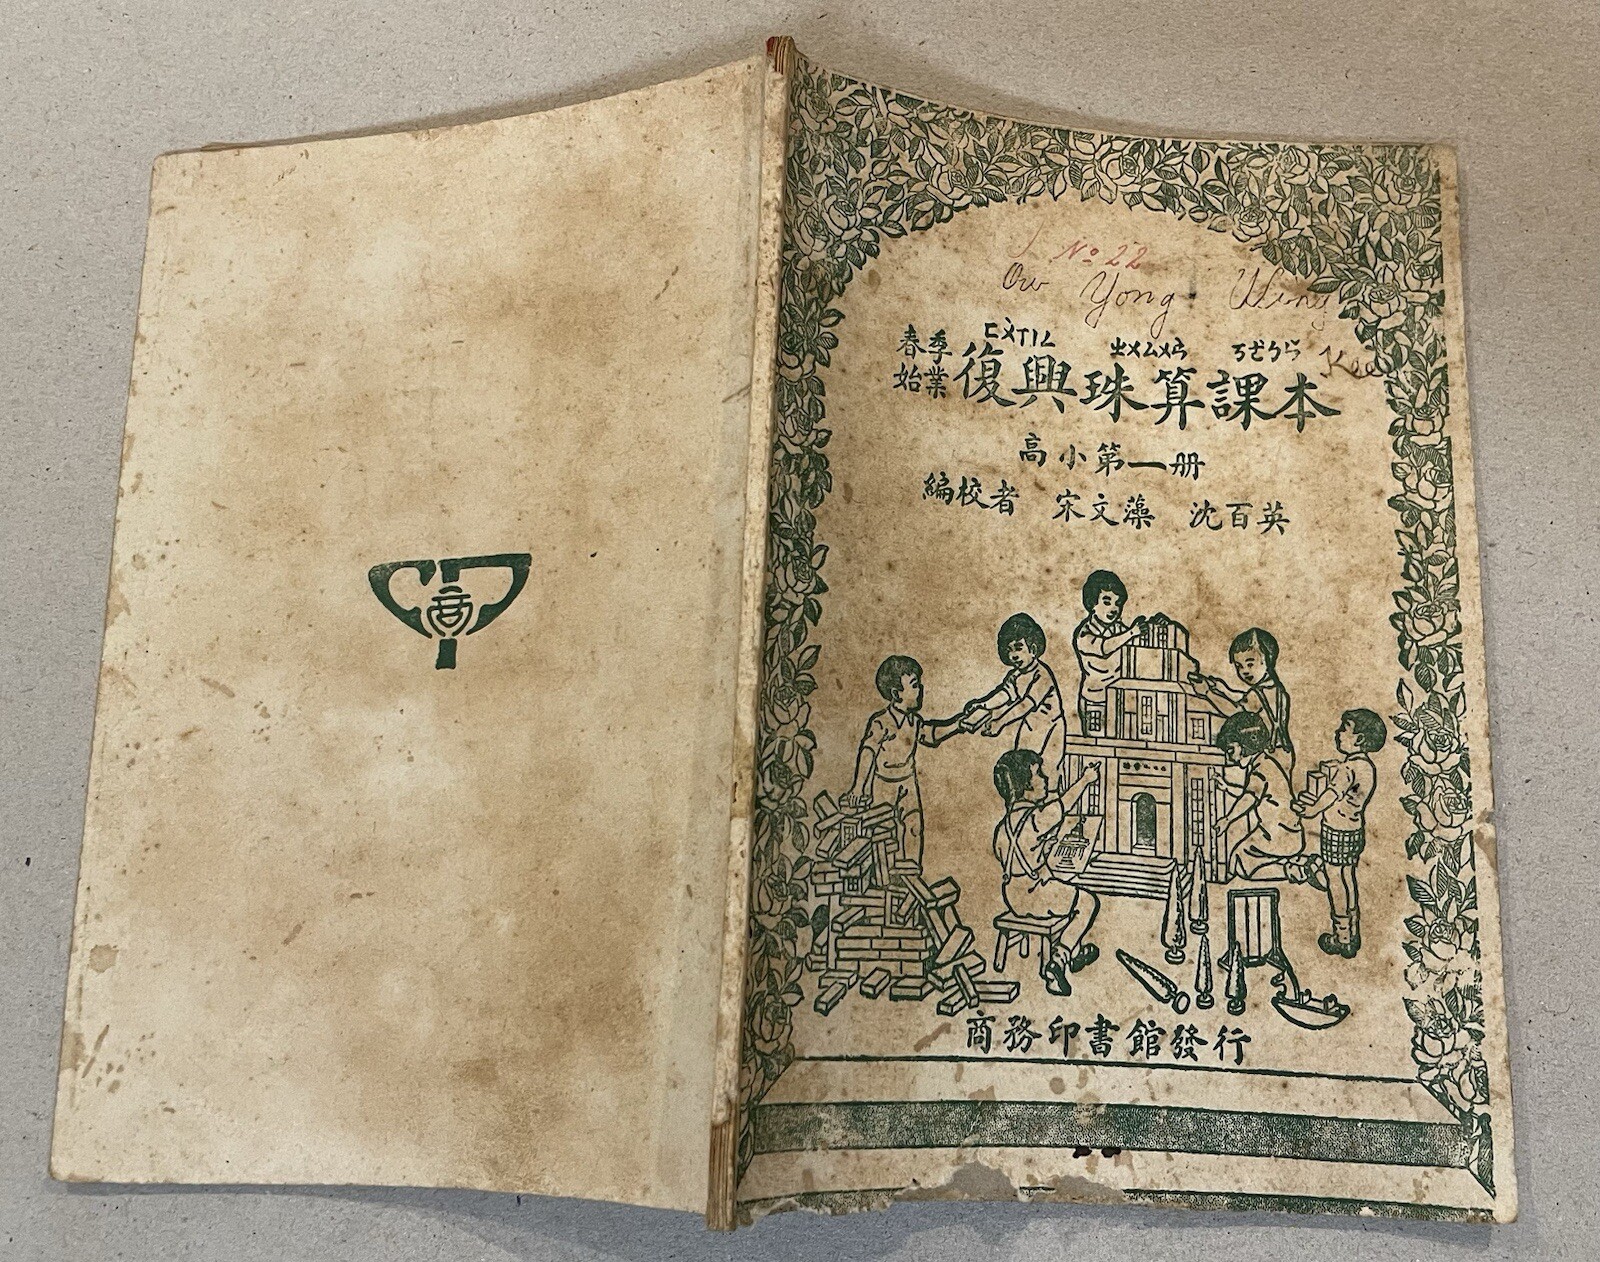 No 22
Ow Yong
Kee
ㄈㄨˋㄒㄧㄥ ㄓㄨㄙㄨㄢ ㄎㄜㄅㄣ
春季始業 復興珠算課本
高小第一册
編校者 宋文藻 沈百英
商務印書館發行
商